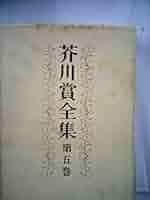 芥川賞全集
第五巻